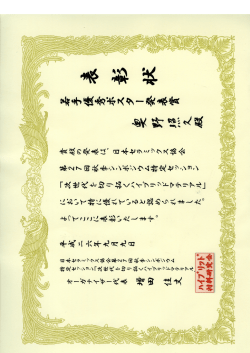 表彰状
若手優秀ポスター発表賞
奥野照久殿
貴殿の発表は、日本セラミックス協会
第27回秋季シンポジウム特定セッション
「次世代を切り拓くハイブリッドマテリアル」
において特に優れていると認められました。
よってここに表彰いたします。
平成二六年九月九日
日本セラミックス協会第27回秋季シンポジウム
特定セッション「次世代を切り拓くハイブリッドマテリアル」
オーガナイザー代表 増田佳丈
ハイブリッド
材料研究会